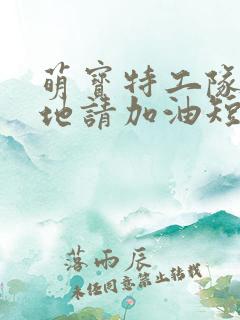 萌寶特工隊
地請加油短
落雨辰
未經同意禁止轉載